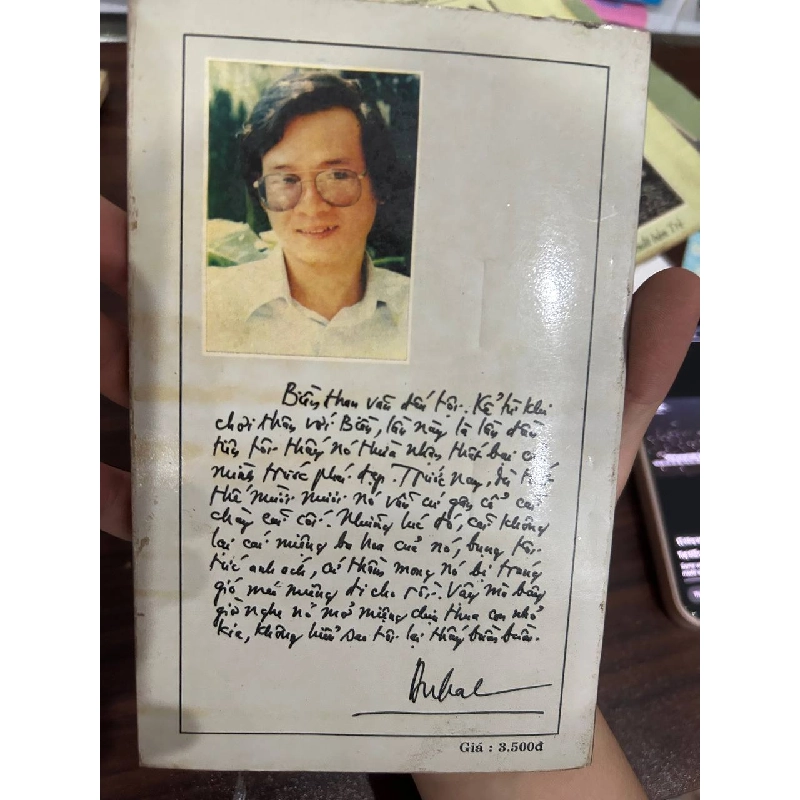 Biền than vãn đến tôi. Kể từ khi
chơi thân với Biền, lần này là lần đầu
tiên tôi thấy nó thừa nhận thất bại của
mình trước phái đẹp. Trước nay, dù thất
thế mười mươi nó vẫn cứ gân cổ cãi
chày cãi cối. Những lúc đó, cãi không
lại cái miệng ba hoa của nó, bụng tôi
tức anh ách, cứ thầm mong nó bị trúng
gió méo miệng đi cho rồi. Vậy mà bây
giờ nghe nó mở miệng chịu thua con nhỏ
kia, không hiểu sao tôi lại thấy buồn buồn.
Giá : 3.500đ